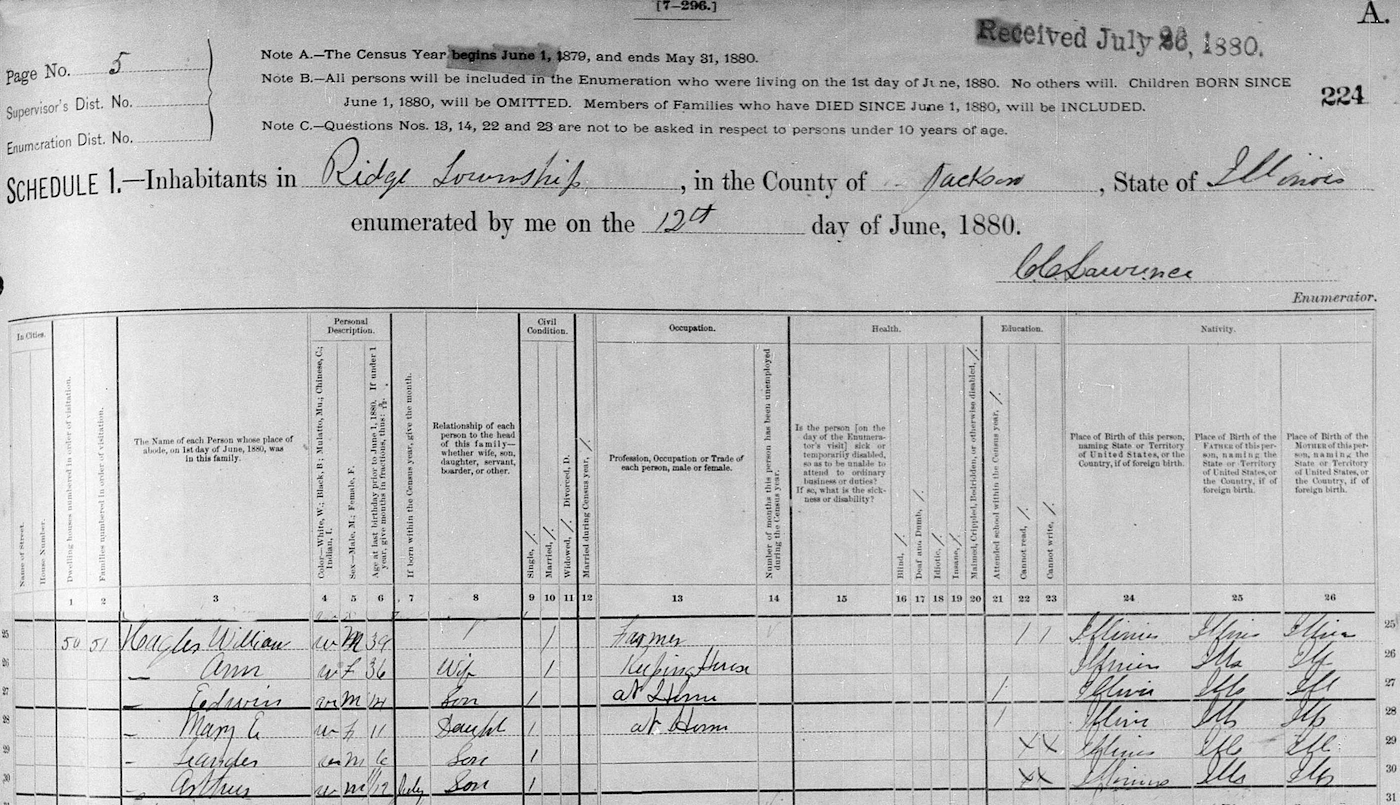 [7-296.]
A.
Received July 26, 1880.
Page No. 5
Supervisor's Dist. No.
Enumeration Dist. No.
Note A.—The Census Year begins June 1, 1879, and ends May 31, 1880.
Note B.—All persons will be included in the Enumeration who were living on the 1st day of June, 1880. No others will. Children BORN SINCE
June 1, 1880, will be OMITTED. Members of Families who have DIED SINCE June 1, 1880, will be INCLUDED.
Note C.—Questions Nos. 13, 14, 22 and 23 are not to be asked in respect to persons under 10 years of age.
224
SCHEDULE 1.—Inhabitants in Ridge Township, in the County of Jackson, State of Illinois
enumerated by me on the 12th day of June, 1880.
C.C. Lawrence
Enumerator.
In Cities.
Name of Street.
House Number.
Dwelling houses numbered in order of visitation.
Families numbered in order of visitation.
The Name of each Person whose place of
abode, on 1st day of June, 1880, was
in this family.
Personal
Description.
Color—White, W.; Black, B.; Mulatto, Mu.; Chinese, C.;
Indian, I.
Sex—Male, M.; Female, F.
Age at last birthday prior to June 1, 1880. If under 1
year, give months in fractions, thus: 3/12.
If born within the Census year, give the month.
Relationship of each
person to the head
of this family—
whether wife, son,
daughter, servant,
boarder, or other.
Civil
Condition.
Single, /.
Married, /.
Widowed, /. Divorced, D.
Married during Census year, /.
Occupation.
Profession, Occupation or Trade of
each person, male or female.
Number of months this person has been unemployed
during the Census year.
Health.
Is the person [on the
day of the Enumera-
tor's visit] sick or
temporarily disabled,
so as to be unable to
attend to ordinary
business or duties?
If so, what is the sick-
ness or disability?
Blind, /.
Deaf and Dumb, /.
Idiotic, /.
Insane, /.
Maimed, Crippled, Bedridden, or otherwise disabled, /.
Education.
Attended school within the Census year, /.
Cannot read, /.
Cannot write, /.
Nativity.
Place of Birth of this person,
naming State or Territory
of United States, or the
Country, if of foreign birth.
Place of Birth of the
FATHER of this per-
son, naming the
State or Territory
of United States, or
the Country, if of
foreign birth.
Place of Birth of the
MOTHER of this per-
son, naming the
State or Territory
of United States, or
the Country, if of
foreign birth.
1 2 3 4 5 6 7 8 9 10 11 12 13 14 15 16 17 18 19 20 21 22 23 24 25 26
25 50 51 William W M 39 / Farmer / / Illinois Illinois Illinois 25
26 — Ann W F 36 Wife / Keeping House Illinois Ills Ill 26
27 — Edwin W M 14 Son / at Home / Illinois Ills Ill 27
28 — Mary E W F 11 Daught / at Home / Illinois Ills Ills 28
29 — Leander W M 6 Son / X X Illinois Ills Ill 29
30 — Arthur W M /12 July Son / X X Illinois Ills Ills 30
31